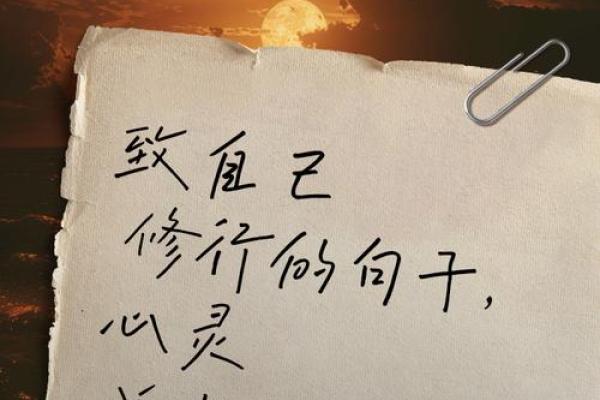 致自己
修行的句子,
心灵